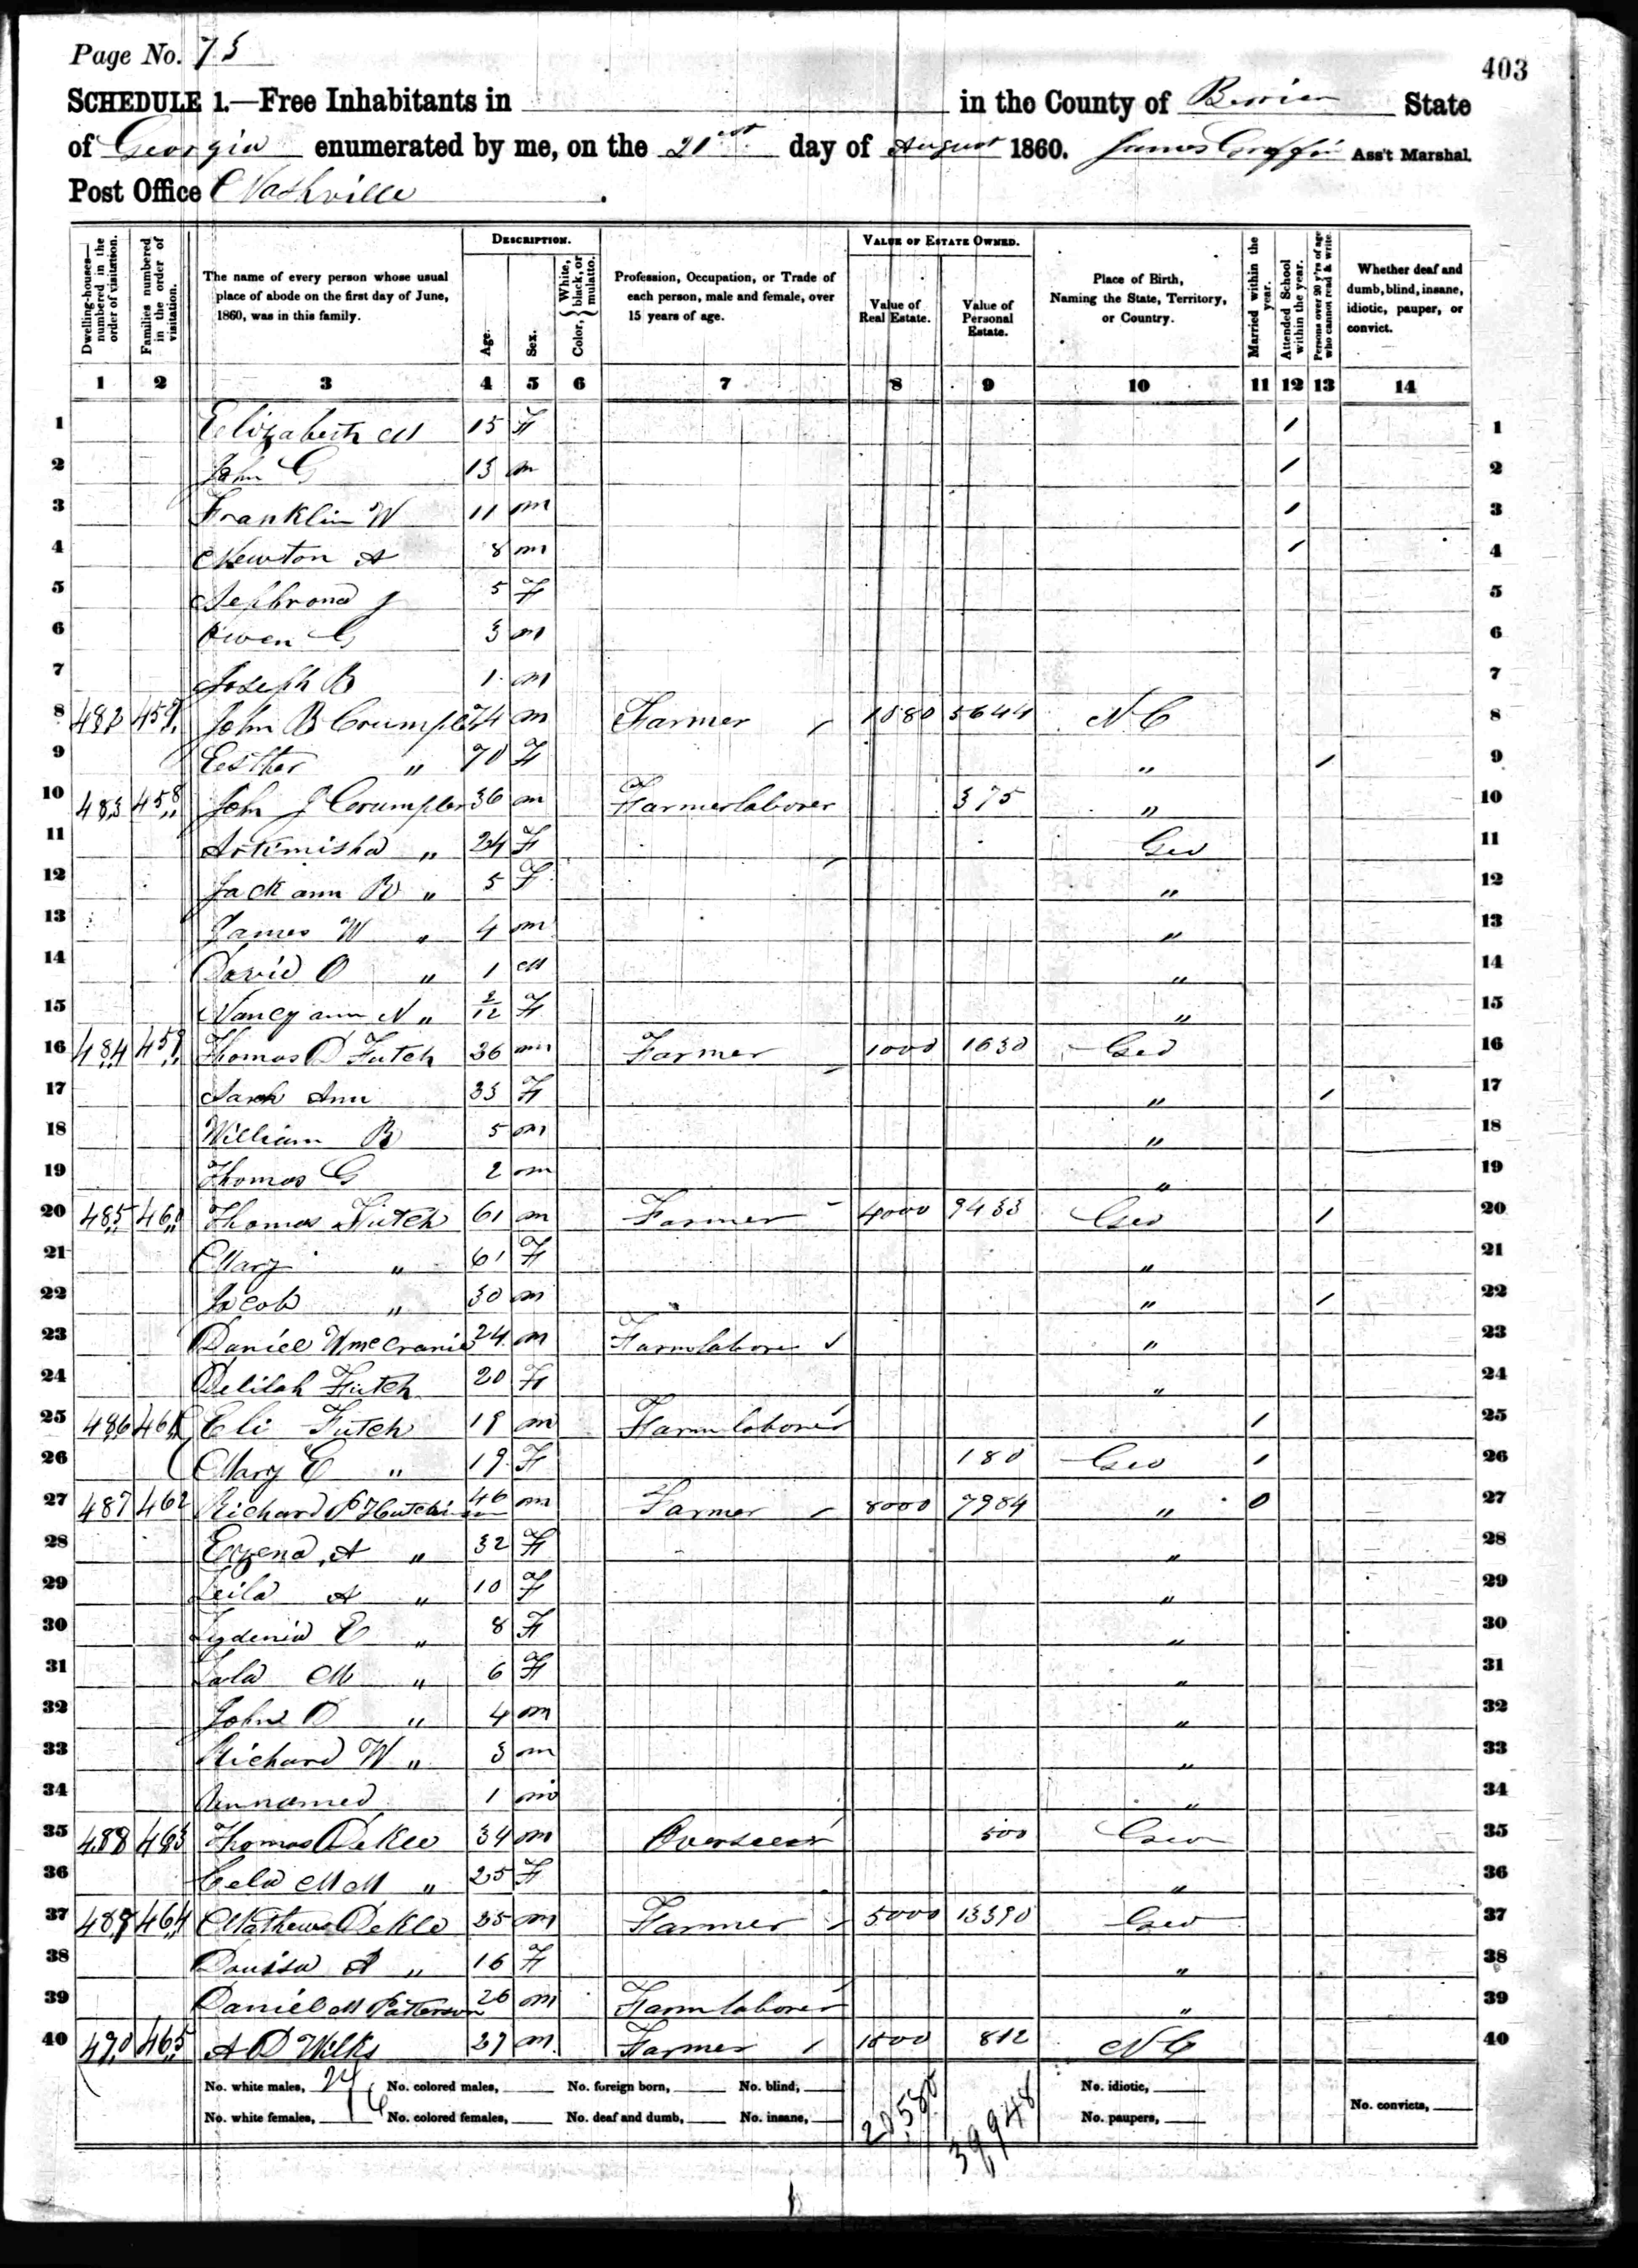 Page No. 73
403
SCHEDULE 1.—Free Inhabitants in in the County of Berrien State
of Georgia enumerated by me, on the 21st day of August 1860. James Griffin Ass't Marshal.
Post Office Nashville
Dwelling-houses—numbered in the order of visitation.
Families numbered in the order of visitation.
The name of every person whose usual place of abode on the first day of June, 1860, was in this family.
DESCRIPTION.
Age.
Sex.
Color, { White, black, or mulatto.
Profession, Occupation, or Trade of each person, male and female, over 15 years of age.
VALUE OF ESTATE OWNED.
Value of Real Estate.
Value of Personal Estate.
Place of Birth, Naming the State, Territory, or Country.
Married within the year.
Attended School within the year.
Persons over 20 y'rs of age who cannot read & write.
Whether deaf and dumb, blind, insane, idiotic, pauper, or convict.
1 2 3 4 5 6 7 8 9 10 11 12 13 14
1 Elizabeth M 15 F / 1
2 John G 13 m / 2
3 Franklin W 11 m / 3
4 Newton A 8 m / 4
5 J 5 F 5
6 Owen G 3 m 6
7 Joseph B 1 m 7
8 482 457 John B Crumpler 74 m Farmer 1080 5644 N C 8
9 Esther " 70 F " / 9
10 483 458 John J Crumpler 36 m Farmerlaborer 375 " 10
11 Artimisha " 24 F Geo 11
12 Jackann B " 5 F " 12
13 James W " 4 m " 13
14 David O " 1 M " 14
15 Nancy ann N " 2/12 F " 15
16 484 459 Thomas D Futch 36 m Farmer 1000 1630 Geo 16
17 Sarah Ann 33 F " / 17
18 William B 5 m " 18
19 Thomas G 2 m " 19
20 485 460 Thomas Futch 61 m Farmer 4000 9433 Geo / 20
21 Mary " 61 F " 21
22 Jacob " 30 m " / 22
23 Daniel W McCranie 24 m Farmlaborer " 23
24 Delilah Futch 20 F " 24
25 486 461 Eli Futch 19 m Farmlaborer / 25
26 Mary E " 19 F 180 Geo / 26
27 487 462 Richard P Hutchinson 46 m Farmer 8000 7984 " 0 27
28 A " 32 F " 28
29 Leila A " 10 F " 29
30 E " 8 F " 30
31 M " 6 F " 31
32 John D " 4 m " 32
33 Richard W " 3 m " 33
34 Unnamed 1 m " 34
35 488 463 Thomas DeKle 34 m Overseer 500 Geo 35
36 M M " 25 F " 36
37 489 464 Mathew DeKle 35 m Farmer 5000 13390 Geo 37
38 A " 16 F " 38
39 Daniel M Patterson 26 m Farmlaborer " 39
40 490 465 A D Wilks 37 m Farmer 1500 812 N C 40
No. white males, 24 No. colored males, No. foreign born, No. blind, 20,580 39,948 No. idiotic,
No. white females, 16 No. colored females, No. deaf and dumb, No. insane, No. paupers, No. convicts,